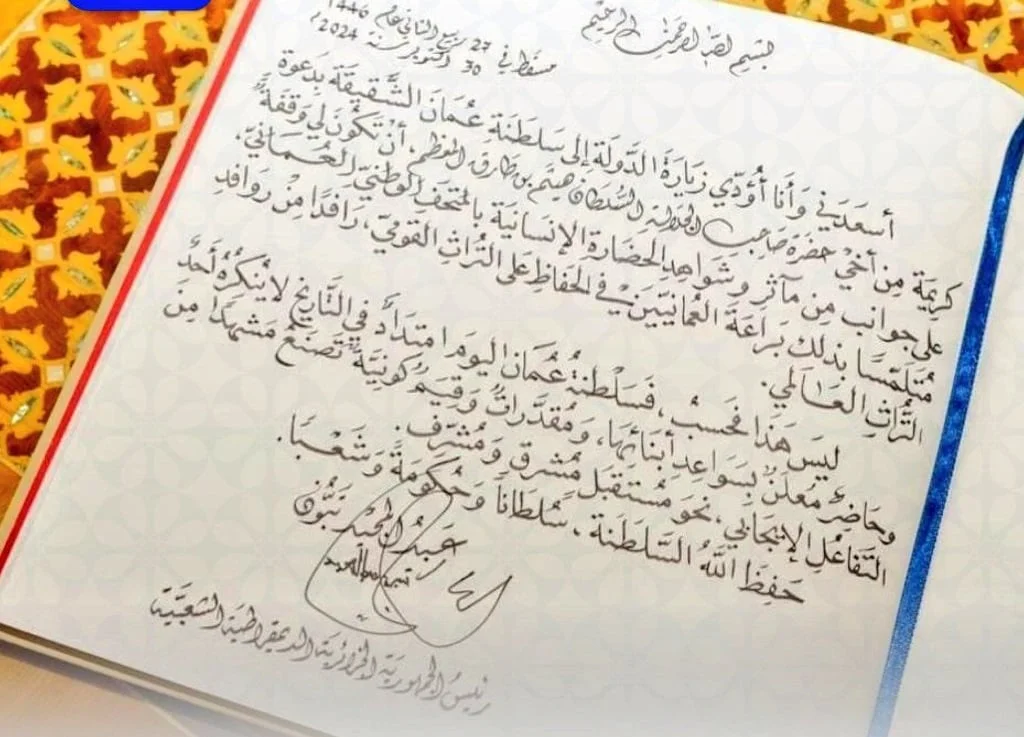 بسم الله الرحمن الرحيم
مسقط في 27 ربيع الثاني عام 1446
30 أكتوبر سنة 2024
أسعدني وأنا أؤدي زيارة الدولة إلى سلطنة عمان الشقيقة بدعوة
كريمة من أخي حضرة صاحب الجلالة السلطان هيثم بن طارق المعظم، أن تكون لي وقفة
على جوانب من مآثر وشواهد الحضارة الإنسانية بالمتحف الوطني العماني،
متلمسا بذلك براعة العمانيين في الحفاظ على التراث القومي، رافدا من روافد
التراث العالمي.
ليس هذا فحسب، فسلطنة عمان اليوم امتداد في التاريخ لا ينكره أحد
وحاضر معلن بسواعد أبنائها، ومقدرات وقيم كونية تصنع مشهدا من
التفاعل الإيجابي، نحو مستقبل مشرق ومشرف.
حفظ الله السلطنة. سلطانا وحكومة وشعبا.
عبد المجيد تبون
رئيس الجمهورية الجزائرية الديمقراطية الشعبية